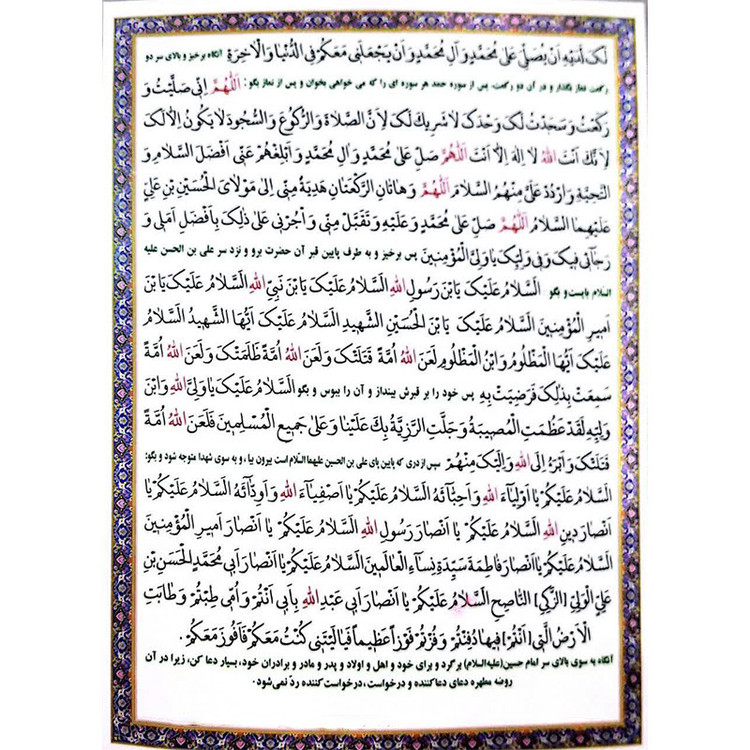 لَکَ لَدَیْهِ اَنْ یُصَلِّیَ عَلیٰ مُحَمَّدٍ وَ آلِ مُحَمَّدٍ وَ اَنْ یَجْعَلَنی مَعَکُمْ فِی الدُّنْیٰا وَ الْاٰخِرَةِ آنگاه برخیز و بالای سر دو
رکعت نماز بگذار و در آن دو رکعت، پس از سوره حمد هر سوره ای را که می خواهی بخوان و پس از نماز بگو: اَللّٰهُمَّ اِنّی صَلَّیْتُ وَ
رَکَعْتُ وَ سَجَدْتُ لَکَ وَحْدَکَ لٰا شَریکَ لَکَ لِاَنَّ الصَّلٰاةَ وَ الرُّکُوعَ وَ السُّجُودَ لٰا یَکُونُ اِلّٰا لَکَ
لِاَنَّکَ اَنْتَ اللّٰهُ لٰا اِلٰهَ اِلّٰا اَنْتَ اَللّٰهُمَّ صَلِّ عَلیٰ مُحَمَّدٍ وَ اٰلِ مُحَمَّدٍ وَ اَبْلِغْهُمْ عَنّی اَفْضَلَ السَّلٰامِ وَ
التَّحِیَّةِ وَ ارْدُدْ عَلَیَّ مِنْهُمُ السَّلٰامَ اَللّٰهُمَّ وَ هٰاتٰانِ الرَّکْعَتٰانِ هَدِیَّةٌ مِنّی اِلیٰ مَوْلٰایَ الْحُسَیْنِ بْنِ عَلِیٍّ
عَلَیْهِمَا السَّلٰامُ اَللّٰهُمَّ صَلِّ عَلیٰ مُحَمَّدٍ وَ عَلَیْهِ وَ تَقَبَّلْ مِنّی وَ أْجُرْنی عَلیٰ ذٰلِکَ بِاَفْضَلِ اَمَلی وَ
رَجٰائی فیکَ وَ فی وَلِیِّکَ یٰا وَلِیَّ الْمُؤْمِنینَ پس برخیز و به طرف پایین قبر آن حضرت برو و نزد سر علی بن الحسین علیه
السّلام بایست و بگو اَلسَّلٰامُ عَلَیْکَ یَابْنَ رَسُولِ اللّٰهِ اَلسَّلٰامُ عَلَیْکَ یَابْنَ نَبِیِّ اللّٰهِ اَلسَّلٰامُ عَلَیْکَ یَابْنَ
اَمیرِ الْمُؤْمِنینَ اَلسَّلٰامُ عَلَیْکَ یَابْنَ الْحُسَیْنِ الشَّهیدِ اَلسَّلٰامُ عَلَیْکَ اَیُّهَا الشَّهیدُ اَلسَّلٰامُ
عَلَیْکَ اَیُّهَا الْمَظْلُومُ وَ ابْنُ الْمَظْلُومِ لَعَنَ اللّٰهُ اُمَّةً قَتَلَتْکَ وَ لَعَنَ اللّٰهُ اُمَّةً ظَلَمَتْکَ وَ لَعَنَ اللّٰهُ اُمَّةً
سَمِعَتْ بِذٰلِکَ فَرَضِیَتْ بِهِ پس خود را بر قبرش بینداز و آن را ببوس و بگو اَلسَّلٰامُ عَلَیْکَ یٰا وَلِیَّ اللّٰهِ وَ ابْنَ
وَلِیِّهِ لَقَدْ عَظُمَتِ الْمُصیبَةُ وَ جَلَّتِ الرَّزِیَّةُ بِکَ عَلَیْنٰا وَ عَلیٰ جَمیعِ الْمُسْلِمینَ فَلَعَنَ اللّٰهُ اُمَّةً
قَتَلَتْکَ وَ اَبْرَءُ اِلَی اللّٰهِ وَ اِلَیْکَ مِنْهُمْ سپس از دری که پایین پای علی بن الحسین علیهما السّلام است بیرون بیا، و به سوی شهدا متوجه شود و بگو:
اَلسَّلٰامُ عَلَیْکُمْ یٰا اَوْلِیٰآءَ اللّٰهِ وَ اَحِبّٰآئَهُ اَلسَّلٰامُ عَلَیْکُمْ یٰا اَصْفِیٰآءَ اللّٰهِ وَ اَوِدّٰآئَهُ اَلسَّلٰامُ عَلَیْکُمْ یٰا
اَنْصٰارَ دینِ اللّٰهِ اَلسَّلٰامُ عَلَیْکُمْ یٰا اَنْصٰارَ رَسُولِ اللّٰهِ اَلسَّلٰامُ عَلَیْکُمْ یٰا اَنْصٰارَ اَمیرِ الْمُؤْمِنینَ
اَلسَّلٰامُ عَلَیْکُمْ یٰا اَنْصٰارَ فٰاطِمَةَ سَیِّدَةِ نِسٰآءِ الْعٰالَمینَ اَلسَّلٰامُ عَلَیْکُمْ یٰا اَنْصٰارَ اَبی مُحَمَّدٍ الْحَسَنِ بْنِ
عَلِیٍّ الْوَلِیِّ [الزَّکِیِّ] النّٰاصِحِ اَلسَّلٰامُ عَلَیْکُمْ یٰا اَنْصٰارَ اَبی عَبْدِ اللّٰهِ بِاَبی اَنْتُمْ وَ اُمّی طِبْتُمْ وَ طٰابَتِ
الْاَرْضُ الَّتی [اَنْتُمْ] فیهٰا دُفِنْتُمْ وَ فُزْتُمْ فَوْزاً عَظیماً فَیٰا لَیْتَنی کُنْتُ مَعَکُمْ فَاَفُوزَ مَعَکُمْ.
آنگاه به سوی بالای سر امام حسین(علیه‌السلام) برگرد و برای خود و اهل و اولاد و پدر و مادر و برادران خود، بسیار دعا کن، زیرا در آن
روضه مطهره دعای دعاکننده و درخواست، درخواست‌کننده ردّ نمی‌شود.